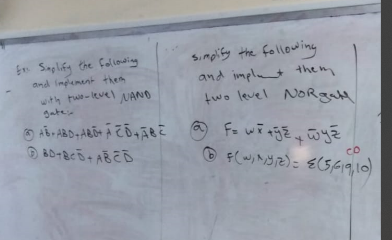 Ex: Simplify the following
and implement them
with two-level NAND
gate:-
ⓐ AB̄ + ABD + ABD̄ + ĀC̄D̄ + ĀBC̄
ⓑ BD + BCD̄ + AB̄C̄D̄
simplify the following
and them
two level NOR gate
ⓐ F = wx̄ + ȳz̄ + w̄yz̄
ⓑ F(w,x,y,z) = Σ(5,6,9,10)
CD